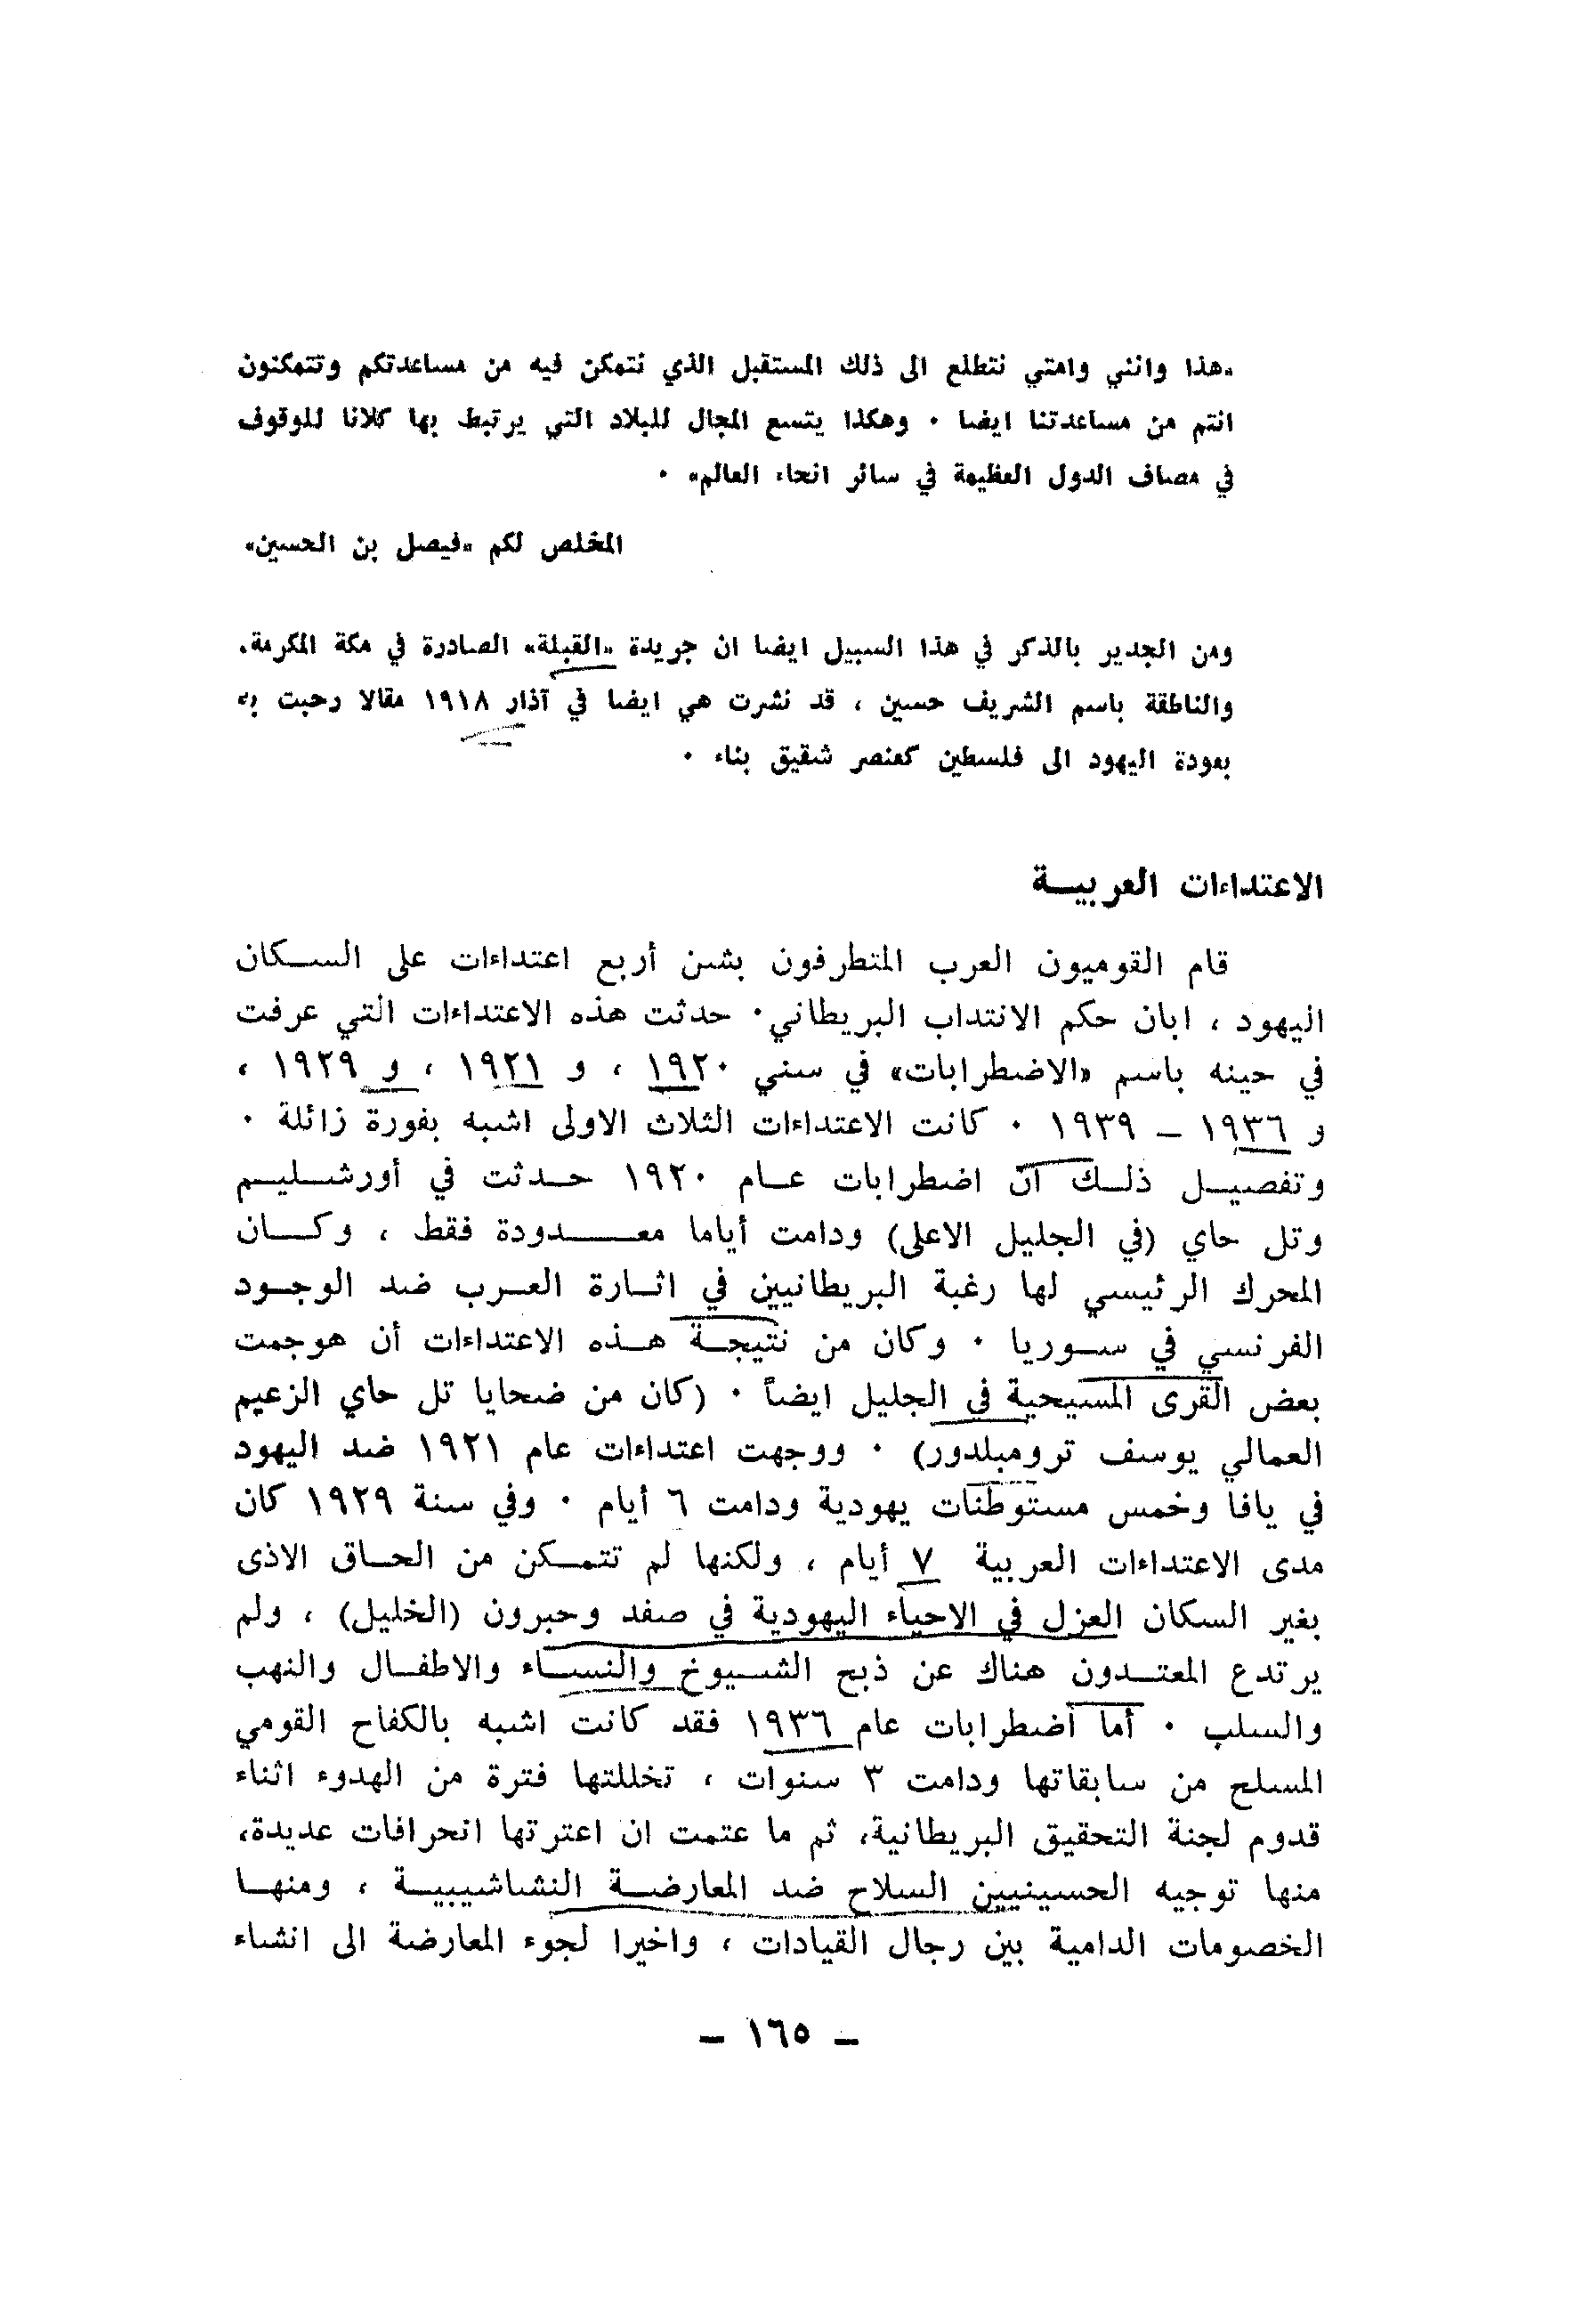 «هذا وانني وامتي نتطلع الى ذلك المستقبل الذي نتمكن فيه من مساعدتكم وتتمكنون
انتم من مساعدتنا ايضا . وهكذا يتسع المجال للبلاد التي يرتبط بها كلانا للوقوف
في مصاف الدول العظيمة في سائر انحاء العالم» .
المخلص لكم «فيصل بن الحسين»
ومن الجدير بالذكر في هذا السبيل ايضا ان جريدة «القبلة» الصادرة في مكة المكرمة،
والناطقة باسم الشريف حسين ، قد نشرت هي ايضا في آذار ١٩١٨ مقالا رحبت به
بعودة اليهود الى فلسطين كعنصر شقيق بناء .
الاعتداءات العربيــة
قام القوميون العرب المتطرفون بشن أربع اعتداءات على الســكان
اليهود ، ابان حكم الانتداب البريطاني. حدثت هذه الاعتداءات التي عرفت
في حينه باسم «الاضطرابات» في سنتي ١٩٢٠ ، و ١٩٢١ ، و ١٩٢٩ ،
و ١٩٣٦ – ١٩٣٩ . كانت الاعتداءات الثلاث الاولى اشبه بفورة زائلة .
وتفصيــل ذلــك ان اضطرابات عــام ١٩٢٠ حــدثت في أورشــليــم
وتل حاي (في الجليل الاعلى) ودامت أياما معــــدودة فقط ، وكــان
المحرك الرئيسي لها رغبة البريطانيين في اثــارة العــرب ضد الوجــود
الفرنسي في ســوريا . وكان من نتيجــة هــذه الاعتداءات أن هوجمت
بعض القرى المسيحية في الجليل ايضاً . (كان من ضحايا تل حاي الزعيم
العمالي يوسف ترومبلدور) . ووجهت اعتداءات عام ١٩٢١ ضد اليهود
في يافا وخمس مستوطنات يهودية ودامت ٦ أيام . وفي سنة ١٩٢٩ كان
مدى الاعتداءات العربية ٧ أيام ، ولكنها لم تتمــكن من الحــاق الاذى
بغير السكان العزل في الاحياء اليهودية في صفد وحبرون (الخليل) ، ولم
يرتدع المعتــدون هناك عن ذبح الشــيوخ والنســاء والاطفــال والنهب
والسلب . أما اضطرابات عام ١٩٣٦ فقد كانت اشبه بالكفاح القومي
المسلح من سابقاتها ودامت ٣ سنوات ، تخللتها فترة من الهدوء اثناء
قدوم لجنة التحقيق البريطانية، ثم ما عتمت ان اعترتها انحرافات عديدة،
منها توجيه الحسينيين السلاح ضد المعارضــة النشاشيبيــة ، ومنهــا
الخصومات الدامية بين رجال القيادات ، واخيرا لجوء المعارضة الى انشاء
– ١٦٥ –